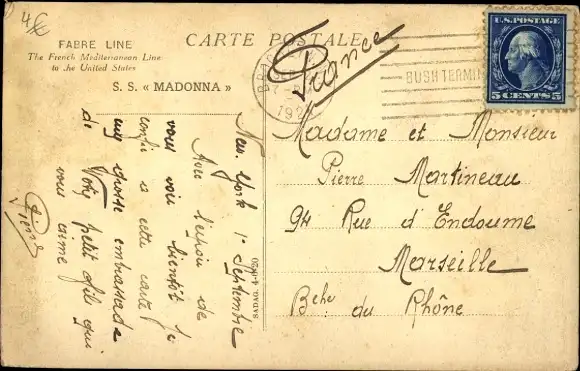 4€
FABRE LINE
The French Mediterranean Line
to the United States
S. S. « MADONNA »
CARTE POSTALE
France
192
BUSH TERMIN
U.S. POSTAGE
5 CENTS 5
New. York 1r Septembre
Avec l'espoir de
vous voir bientôt je
confie à cette carte
une grosse embrassade
de Votre petit fils qui
vous aime
Pierre
SADAG. 4-1920
Madame et Monsieur
Pierre Martineau
94 Rue d'Endoume
Marseille
Bche du Rhône